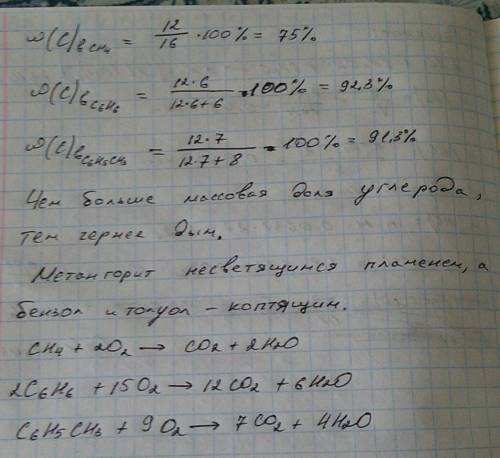 ω(C) в CH4 = 12/16 · 100% = 75%
ω(C) в C6H6 = 12·6/12·6+6 · 100% = 92,3%
ω(C) в C6H5CH3 = 12·7/12·7+8 · 100% = 91,3%
Чем больше массовая доля углерода,
тем чернее дым.
Метан горит несветящимся пламенем, а
бензол и толуол – коптящим.
CH4 + 2O2 → CO2 + 2H2O
2C6H6 + 15O2 → 12CO2 + 6H2O
C6H5CH3 + 9O2 → 7CO2 + 4H2O